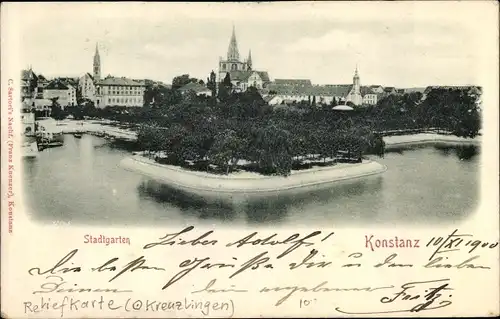 C. Sartori's Nachf. (Franz Knenzer), Konstanz
Stadtgarten
Konstanz 10/XI 1900
Lieber Adolf!
Die besten Grüße dir u den lieben
Deinen
dein
Fritz
Reliefkarte (O Kreuzlingen)
10.-